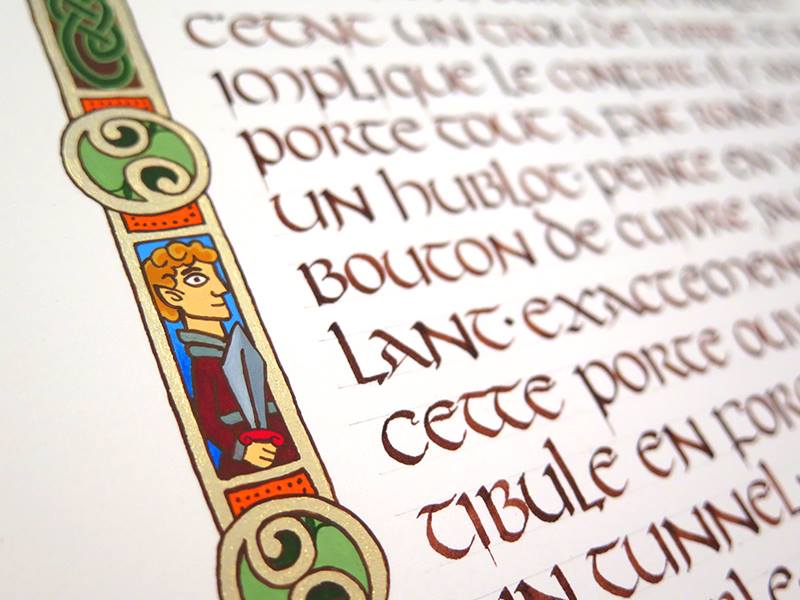 C'ETAIT UN TROU de
IMPLIQUE LE CONFORT. IL
PORTE TOUT A FAIT RONDE
UN HUBLOT. PEINTE EN
BOUTON de CUIVRE
LANT. EXACTEMEN
CETTE PORTE OUV
TIBULE EN FOR
UN TUNNEL